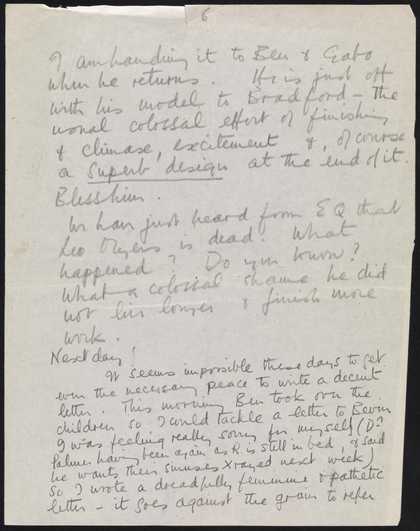 6
I am handing it to Ben & Gabo
when he returns. He is just off
with his model to Bradford – the
usual colossal effort of finishing
& climax, excitement &, of course
a Superb design at the end of it.
Bless him.
We have just heard from EQ that
Leo Myers is dead. What
happened? Do you know?
What a colossal shame he did
not live longer & finish more
work.
Next day!
It seems impossible these days to get
even the necessary peace to write a decent
letter. This morning Ben took over the
children so I could tackle a letter to
I was feeling really sorry for myself (Dr
Palmer having been again as R. is still in bed & said
he wants their sinuses Xrayed next week)
So I wrote a dreadfully feminine & pathetic
letter – it goes against the grain to refer